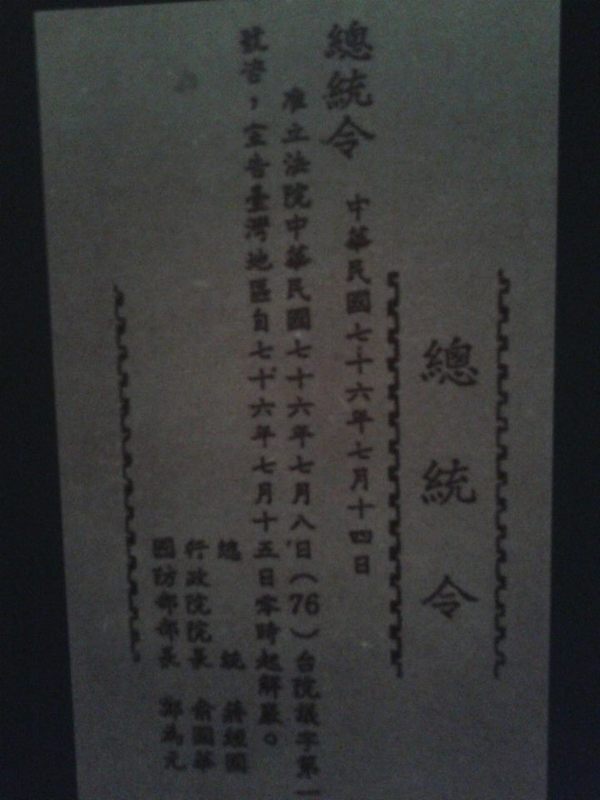 總統令
總統令 中華民國七十六年七月十四日
准立法院中華民國七十六年七月八日（76）台院議字第一
號咨，宣告臺灣地區自七十六年七月十五日零時起解嚴。
總統 蔣經國
行政院院長 俞國華
國防部部長 鄭為元